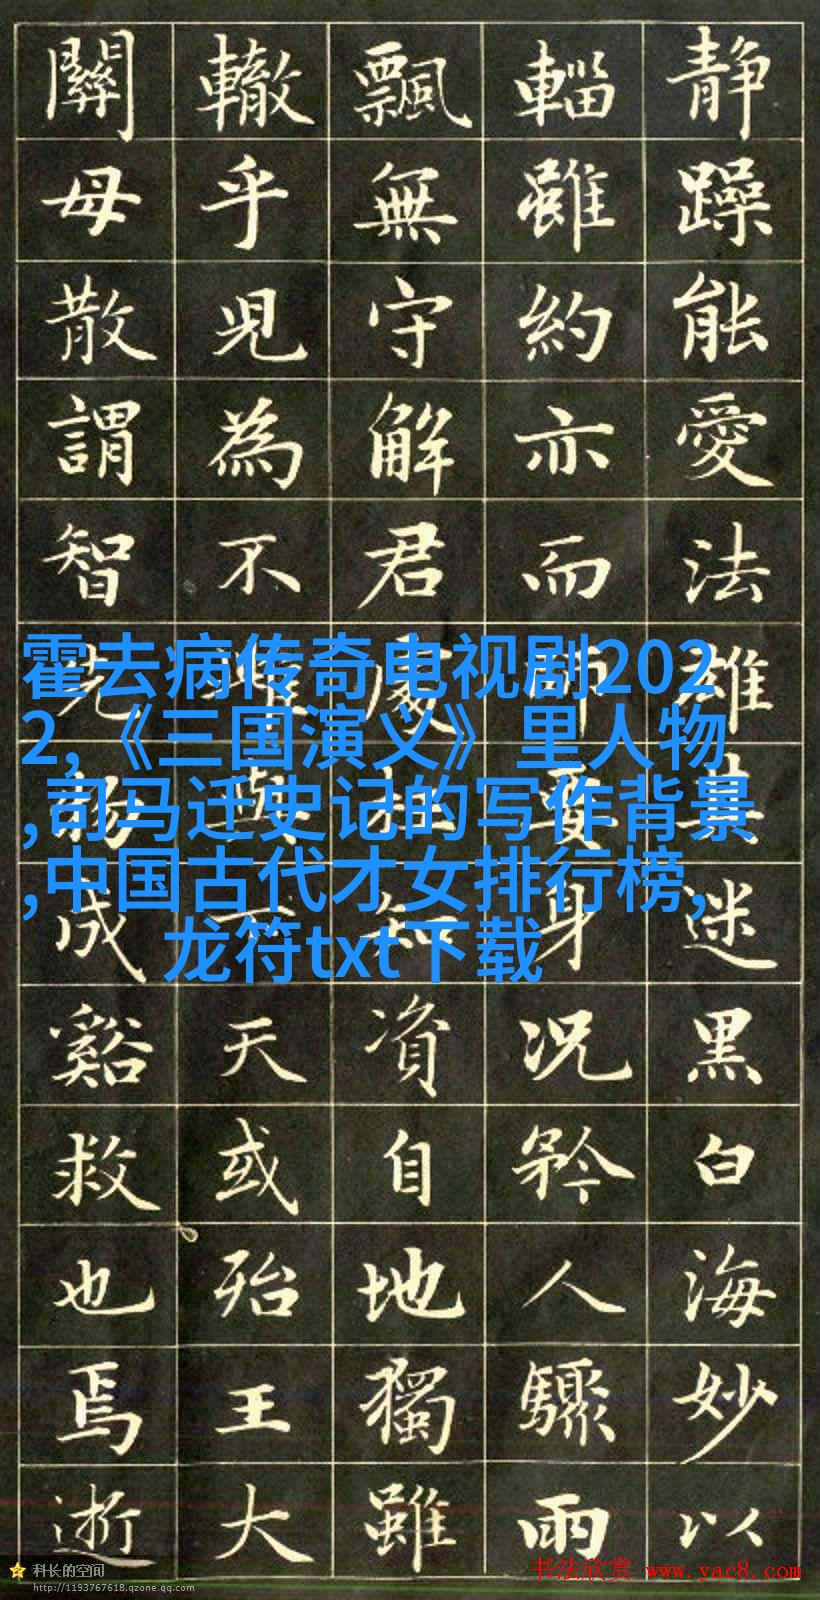 静躁能愛法雄其迷黑白海妙以
輜雖約亦而師要身况矜人驟雨
飄無守解君處知資自地獨雖
轍乎児為不與天或殆王大
關母散謂智先成谿救也焉逝
霍去病传奇电视剧202
2,《三国演义》里人物
,司马迁史记的写作背景
,中国古代才女排行榜,
龙符txt下载
科长的空间
http://1193767618.qzone.qq.com
书法欣赏 www.yac8.com